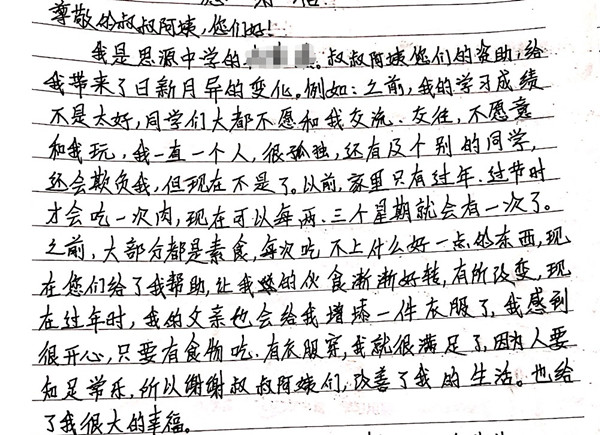 尊敬的叔叔阿姨,您们好!
我是思源中学的 。叔叔阿姨您们的资助,给
我带来了日新月异的变化。例如:之前,我的学习成绩
不是太好,同学们大都不愿和我交流、交往,不愿意
和我玩,我一直一个人,很孤独,还有及个别的同学,
还会欺负我,但现在不是了。以前,家里只有过年、过节时
才会吃一次肉,现在可以每两、三个星期就会有一次了。
之前,大部分都是素食,每次吃不上什么好一点的东西,现
在您们给了我帮助,让我的伙食渐渐好转,有所改变,现
在过年时,我的父亲也会给我增添一件衣服了,我感到
很开心,只要有食物吃、有衣服穿,我就很满足了,因为人要
知足常乐,所以谢谢叔叔阿姨们,改善了我的生活。也给
了我很大的幸福。